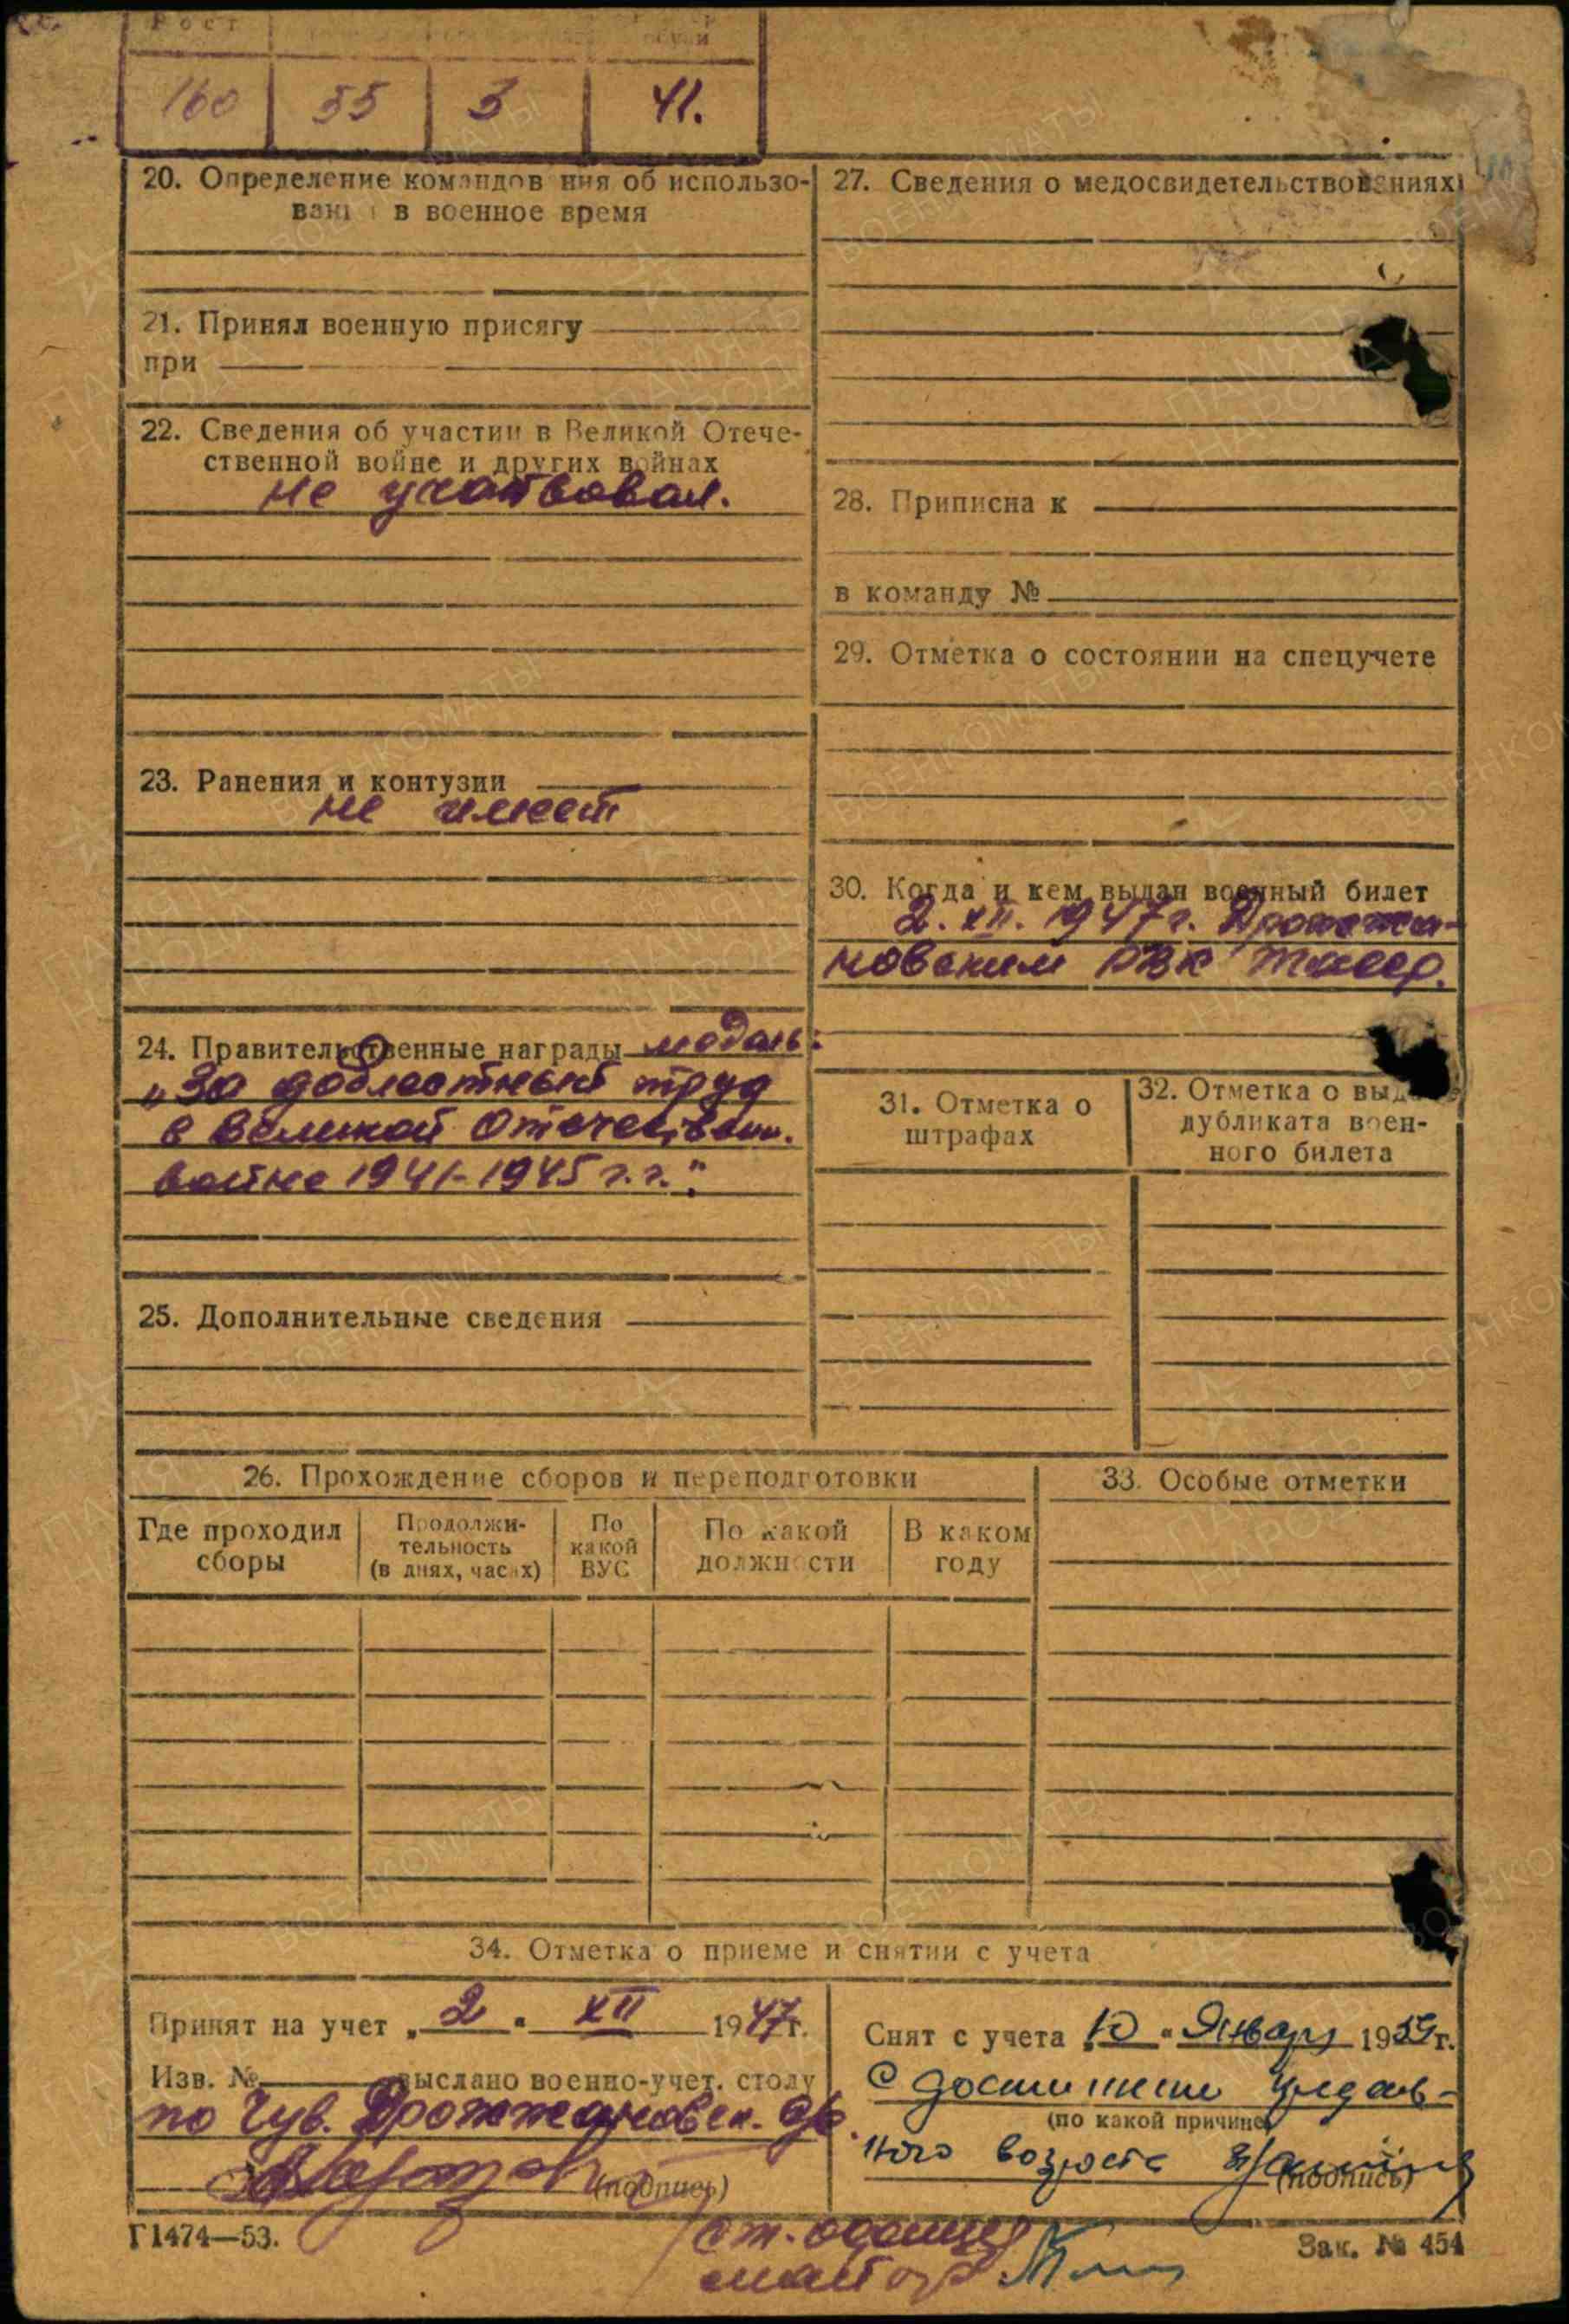 Рост
160 55 3 41.
20. Определение командов ния об использо-
ван в военное время
21. Принял военную присягу
при
22. Сведения об участии в Великой Отече-
ственной войне и других войнах
не участвовал.
23. Ранения и контузии
не имеет
24. Правительственные награды медаль:
„За доблестный труд
в Великой Отечествен.
войне 1941-1945 г.г."
25. Дополнительные сведения
27. Сведения о медосвидетельствованиях
28. Приписна к
в команду №
29. Отметка о состоянии на спецучете
30. Когда и кем выдан военный билет
2. XII. 1947 г. Дрожжа-
новским РВК Тасср.
31. Отметка о
штрафах
32. Отметка о выд
дубликата воен-
ного билета
26. Прохождение сборов и переподготовки
Где проходил
сборы
Продолжи-
тельность
(в днях, часах)
По
какой
ВУС
По какой
должности
В каком
году
33. Особые отметки
34. Отметка о приеме и снятии с учета
Принят на учет „2" XII 1947г.
Изв. № выслано военно-учет. столу
по Чув. Дрожжановск. с/с.
(подпись)
Снят с учета 10 " Январ 1959г.
С достижении предель-
(по какой причине)
ного возраста
(подпись)
Г1474—53.
Зак. № 454
майор